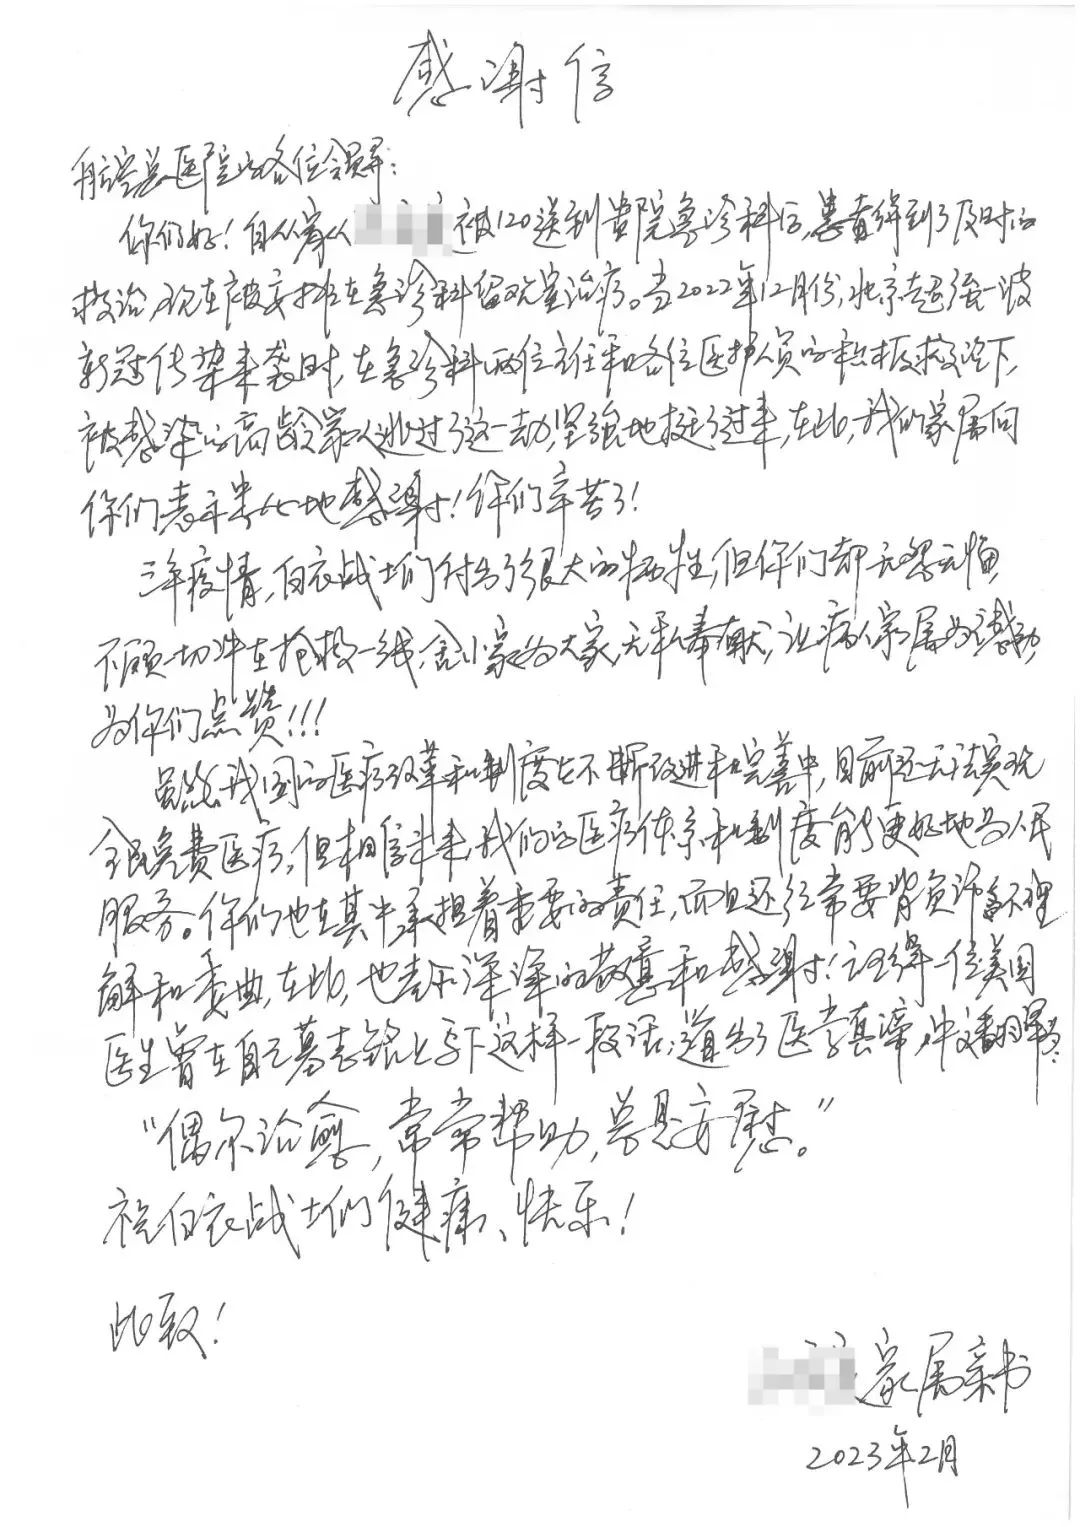 感谢信
航空总医院的各位领导:
你们好!自从家人被120送到贵院急诊科后,患者得到了及时的
救治,现在被安排在急诊科留观室治疗。当2022年12月份,北京超强一波
新冠传染来袭时,在急诊科两位主任和各位医护人员的积极救治下,
被感染的高龄家人逃过了这一劫,坚强地挺了过来,在此,我们家属向
你们表示衷心地感谢!你们辛苦了!
三年疫情,白衣战士们付出了很大的牺牲,但你们都无怨无悔,
不顾一切冲在抢救一线,舍小家为大家,无私奉献,让病人家属为之感动,
为你们点赞!!!
虽然我国的医疗改革和制度在不断改进和完善中,目前还无法实现
全民免费医疗,但相信未来,我们的医疗体系和制度能更好地为人民
服务。你们也在其中承担着重要的责任,而且还经常要背负许多不理
解和委曲,在此,也表示深深的敬意和感谢!记得一位美国
医生曾在自己墓志铭上写下这样一段话,道出了医学真谛,中文翻译是:
“偶尔治愈,常常帮助,总是安慰。”
祝白衣战士们健康、快乐!
此致!
家属亲书
2023年2月